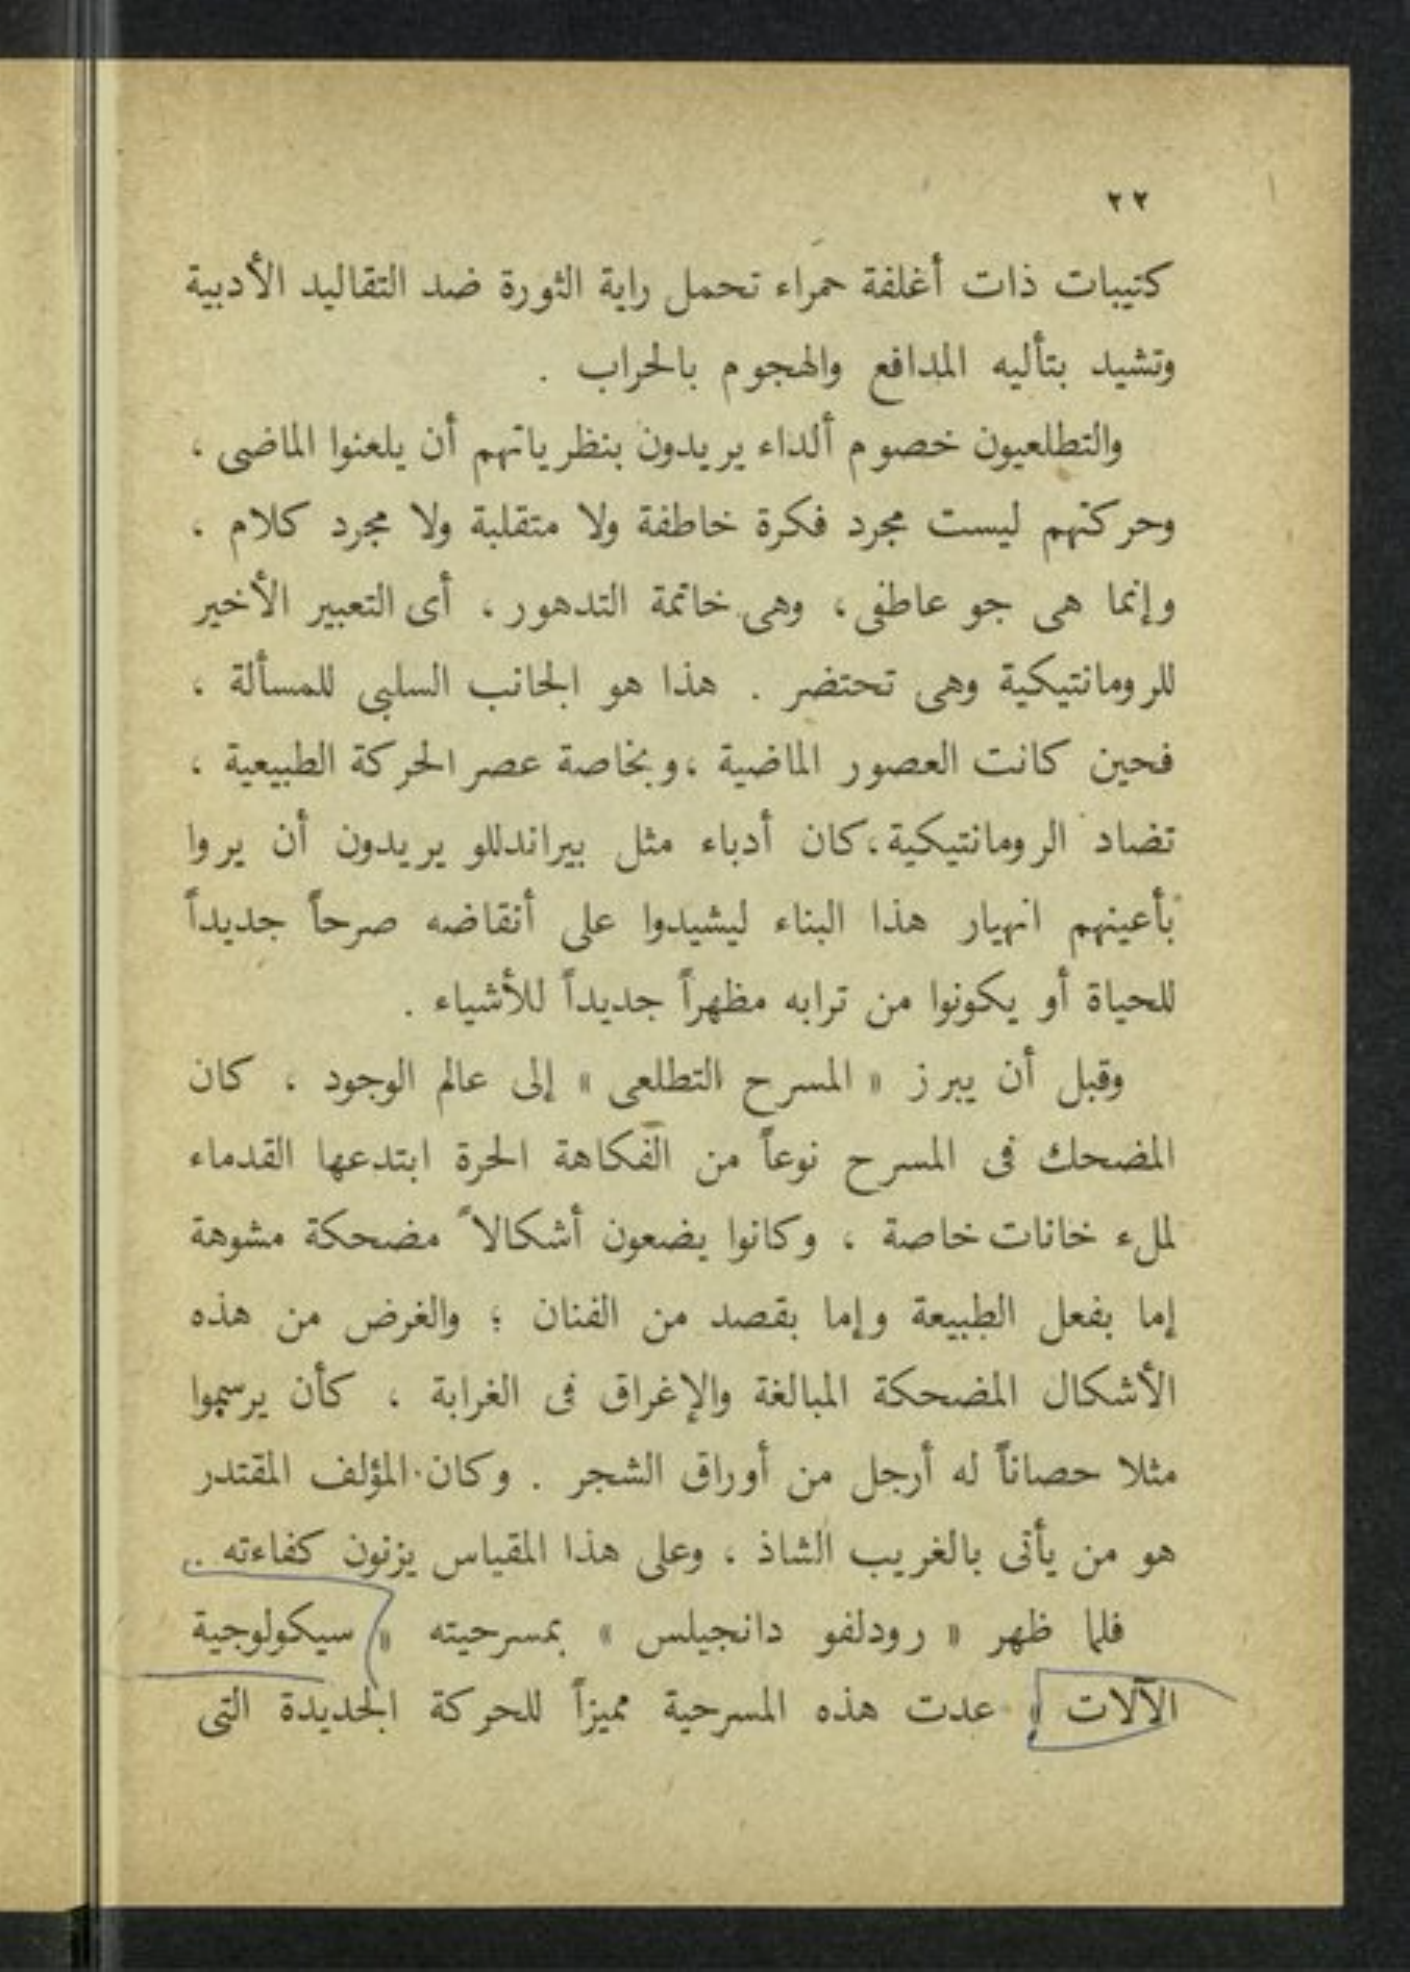 ٢٢
كتيبات ذات أغلفة حمراء تحمل راية الثورة ضد التقاليد الأدبية
وتشيد بتأليه المدافع والهجوم بالحراب .
والتطلعيون خصوم ألداء يريدون بنظرياتهم أن يلعنوا الماضى ،
وحركتهم ليست مجرد فكرة خاطفة ولا متقلبة ولا مجرد كلام ،
وإنما هى جو عاطفى ، وهى خاتمة التدهور ، أى التعبير الأخير
للرومانتيكية وهى تحتضر . هذا هو الجانب السلبى للمسألة ،
فحين كانت العصور الماضية ، وبخاصة عصر الحركة الطبيعية ،
تضاد الرومانتيكية ، كان أدباء مثل بيراندللو يريدون أن يروا
بأعينهم انهيار هذا البناء ليشيدوا على أنقاضه صرحاً جديداً
للحياة أو يكونوا من ترابه مظهراً جديداً للأشياء .
وقبل أن يبرز « المسرح التطلعى » إلى عالم الوجود ، كان
المضحك فى المسرح نوعاً من الفكاهة الحرة ابتدعها القدماء
لملء خانات خاصة ، وكانوا يضعون أشكالاً مضحكة مشوهة
إما بفعل الطبيعة وإما بقصد من الفنان ؛ والغرض من هذه
الأشكال المضحكة المبالغة والإغراق فى الغرابة ، كأن يرسموا
مثلا حصاناً له أرجل من أوراق الشجر . وكان المؤلف المقتدر
هو من يأتى بالغريب الشاذ ، وعلى هذا المقياس يزنون كفاءته ..
فلما ظهر « رودلفو دانجيلس » بمسرحيته « سيكولوجية
الآلات » عدت هذه المسرحية مميزاً للحركة الجديدة التى